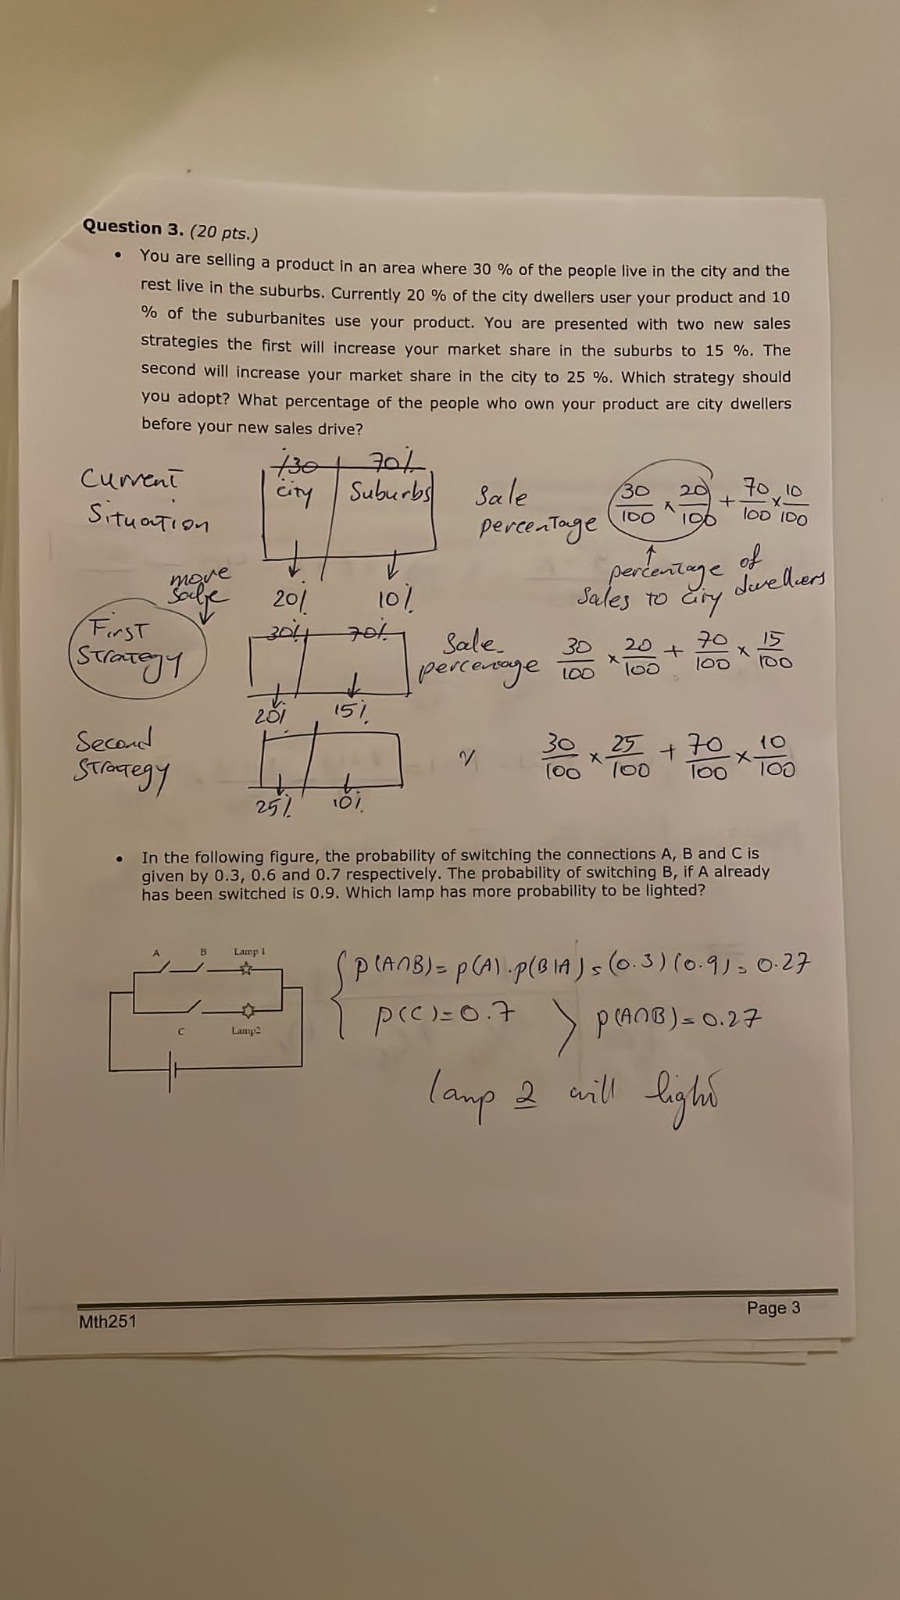 Question 3. (20 pts.)
• You are selling a product in an area where 30 % of the people live in the city and the
rest live in the suburbs. Currently 20 % of the city dwellers user your product and 10
% of the suburbanites use your product. You are presented with two new sales
strategies the first will increase your market share in the suburbs to 15 %. The
second will increase your market share in the city to 25 %. Which strategy should
you adopt? What percentage of the people who own your product are city dwellers
before your new sales drive?
Current
Situation
%30 70%
city Suburbs
20% 10%
Sale
percentage 30/100 × 20/100 + 70/100 × 10/100
percentage of
Sales to city dwellers
more
First
Strategy
30% 70%
20% 15%
Sale
percentage 30/100 × 20/100 + 70/100 × 15/100
Second
Strategy
25% 10%
30/100 × 25/100 + 70/100 × 10/100
• In the following figure, the probability of switching the connections A, B and C is
given by 0.3, 0.6 and 0.7 respectively. The probability of switching B, if A already
has been switched is 0.9. Which lamp has more probability to be lighted?
A B Lamp 1
C Lamp2
P(A∩B) = P(A) . P(B|A) = (0.3) (0.9) = 0.27
P(C) = 0.7 > P(A∩B) = 0.27
lamp 2 will light
Mth251
Page 3